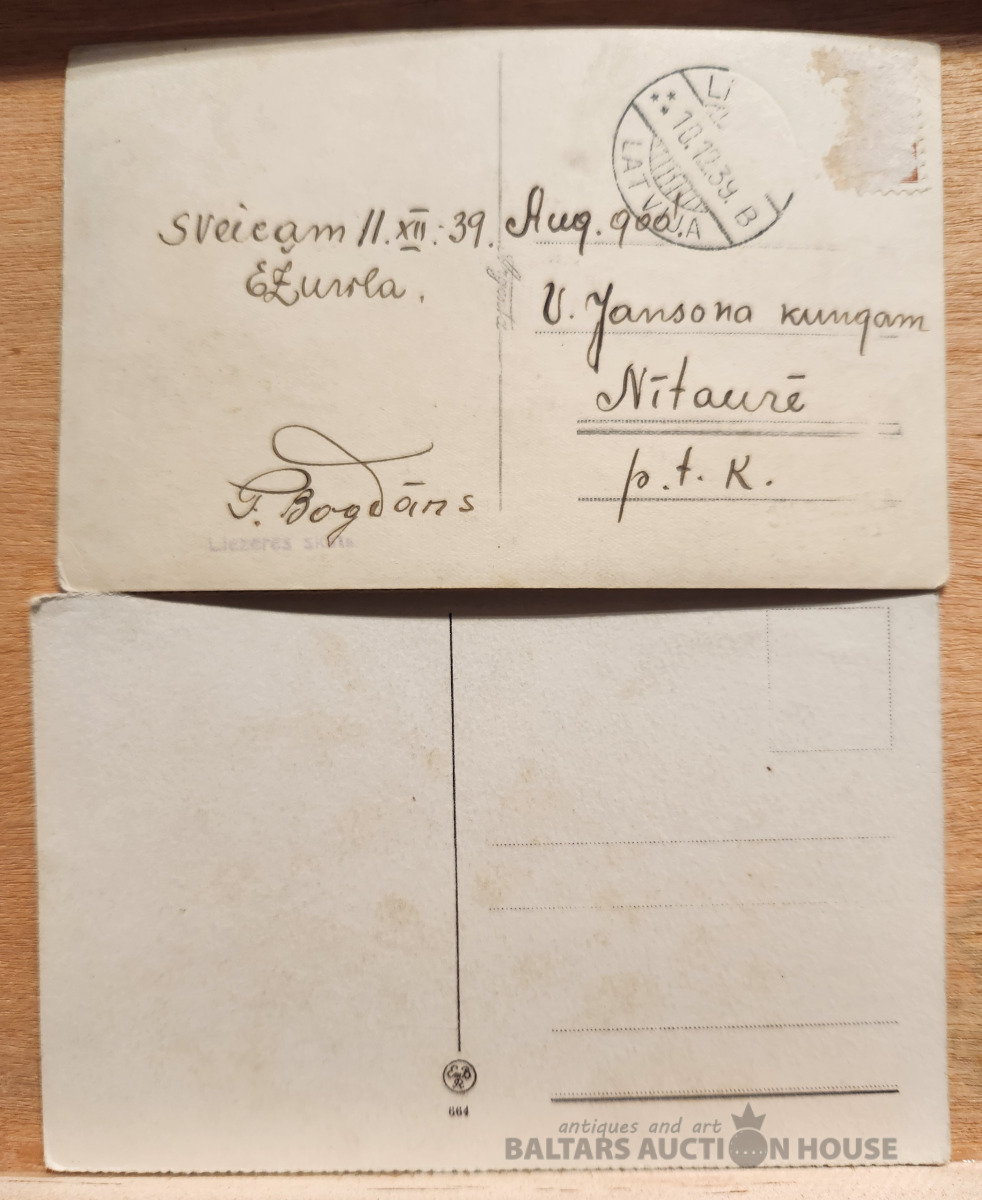 Sveicam 11.XII.39.
P. Bogdāns
Liezeres skats
10.12.39. B
LATVIJA
Aug. god.
V. Jansona kungam
Nītaurē
p.t.k.
EBR
664
antiques and art
BALTARS AUCTION HOUSE